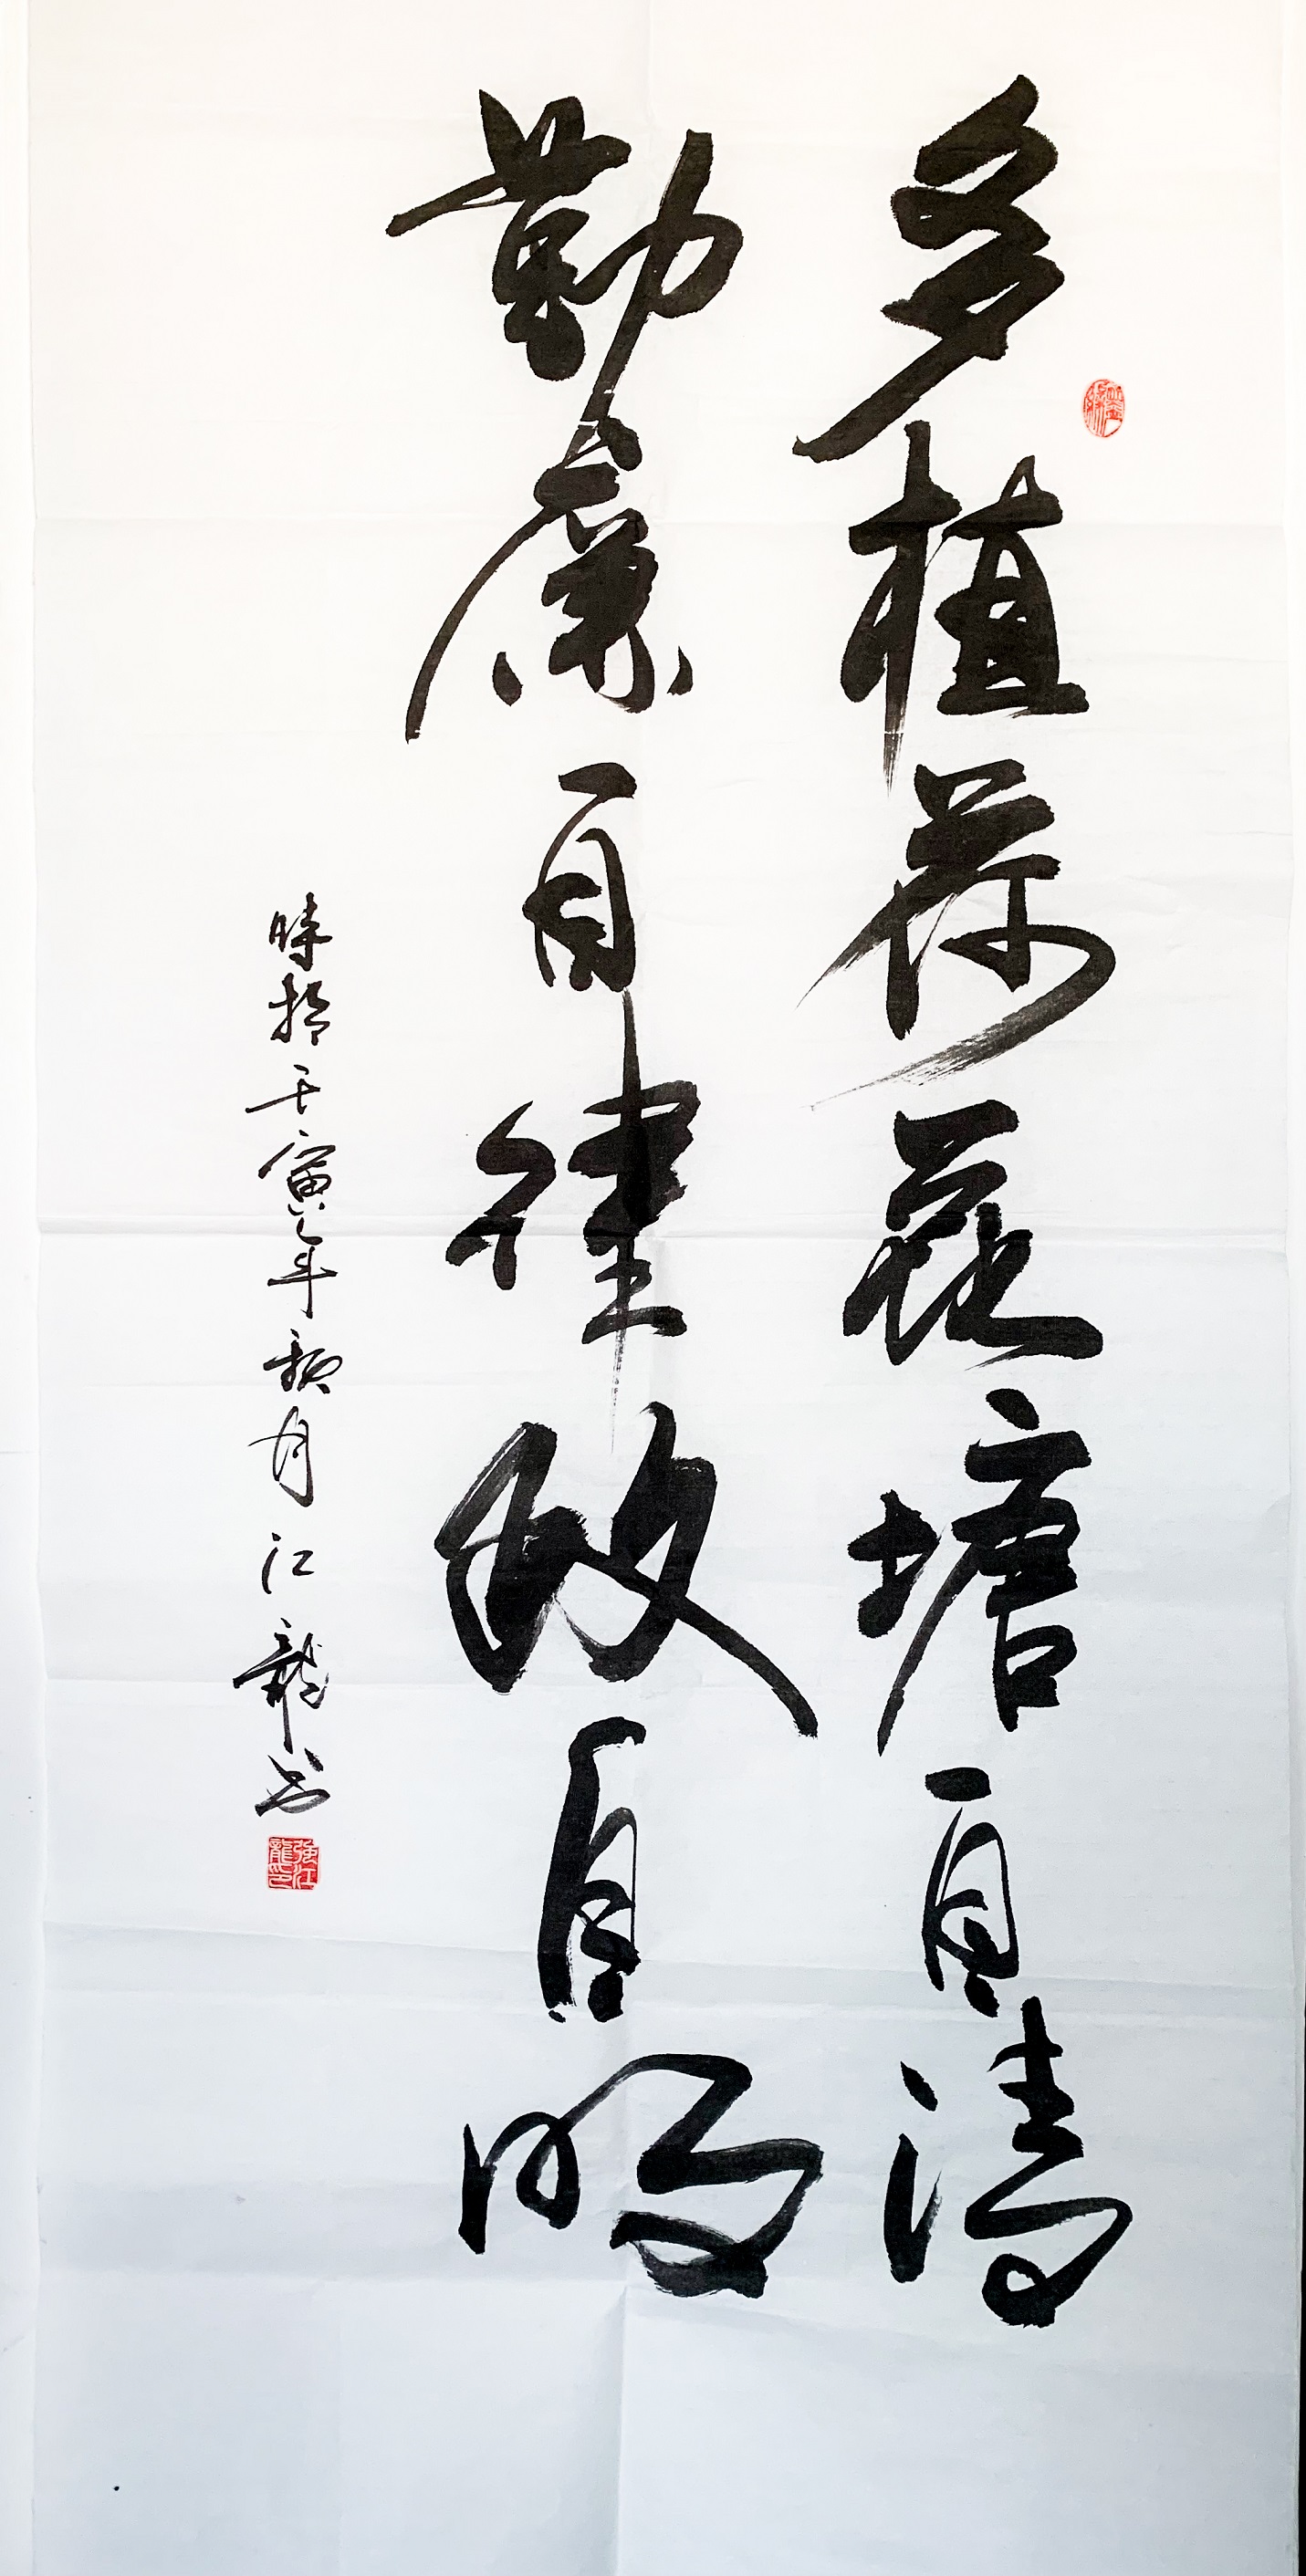 多植荷花塘自清
勤廉自律政自明
時於壬寅年秋月江龍书
强江龍印